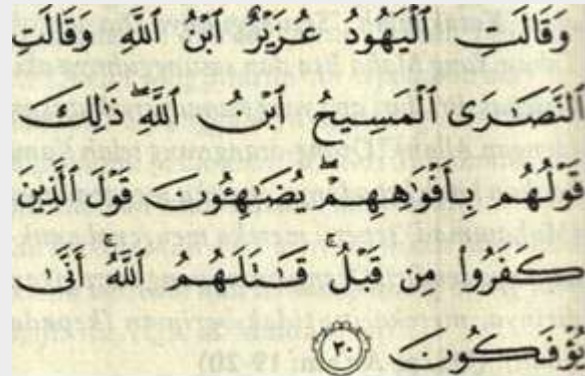 وَقَالَتِ ٱلْيَهُودُ عُزَيْرٌ ٱبْنُ ٱللَّهِ وَقَالَتِ
ٱلنَّصَـٰرَى ٱلْمَسِيحُ ٱبْنُ ٱللَّهِ ۖ ذَٰلِكَ
قَوْلُهُم بِأَفْوَٰهِهِمْ ۖ يُضَـٰهِـُٔونَ قَوْلَ ٱلَّذِينَ
كَفَرُوا۟ مِن قَبْلُ ۚ قَـٰتَلَهُمُ ٱللَّهُ ۚ أَنَّىٰ
يُؤْفَكُونَ ٣٠